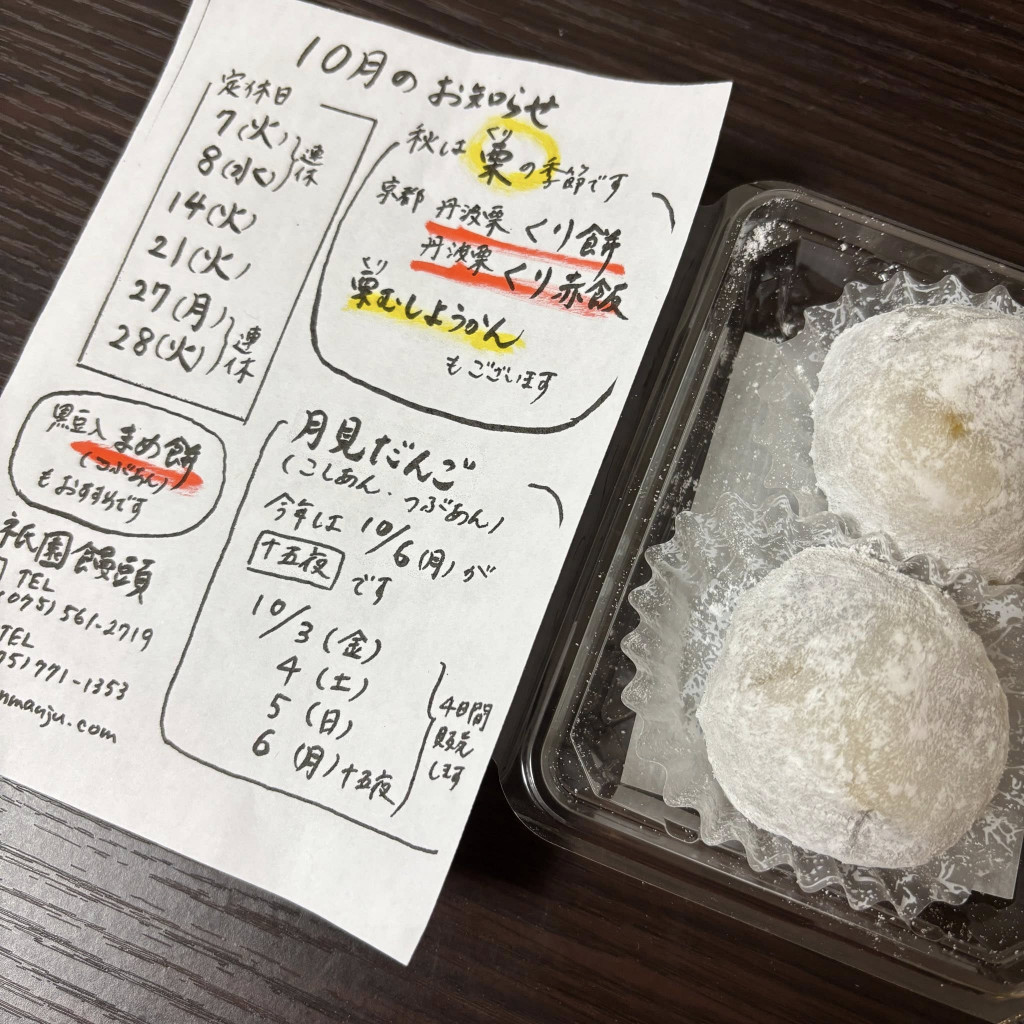 10月のお知らせ
定休日
7(火)
8(水)
連休
14(火)
21(火)
27(月)
28(火)
連休
秋は栗の季節です
くり
京都 丹波栗 くり餅
丹波栗 くり赤飯
くり
栗むしようかん
もございます
黒豆入 まめ餅
(つぶあん)
もおすすめです
月見だんご
(こしあん・つぶあん)
今年は 10/6(月)が
十五夜 です
10/3(金)
4(土)
5(日)
6(月)十五夜
4日間
販売
します
祇園饅頭
TEL
(075)561-2719
TEL
75)771-1353
nmanju.com